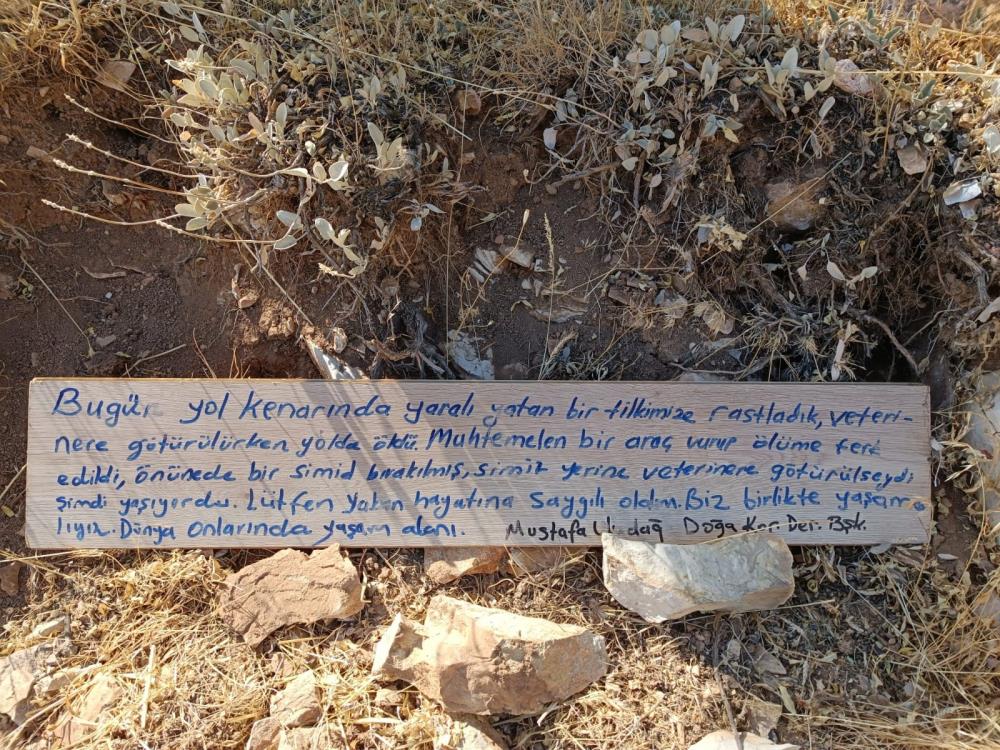 Bugün yol kenarında yaralı yatan bir tilkimize rastladık, veteri-
nere götürülürken yolda öldü. Muhtemelen bir araç vurup ölüme terk
edildi, önünede bir simid bırakılmış, simit yerine veterinere götürülseydi
şimdi yaşıyordu. Lütfen yaban hayatına saygılı olalım. Biz birlikte yaşam
lıyız. Dünya onlarında yaşam alanı. Mustafa Doğa Kor. Der. Bşk.